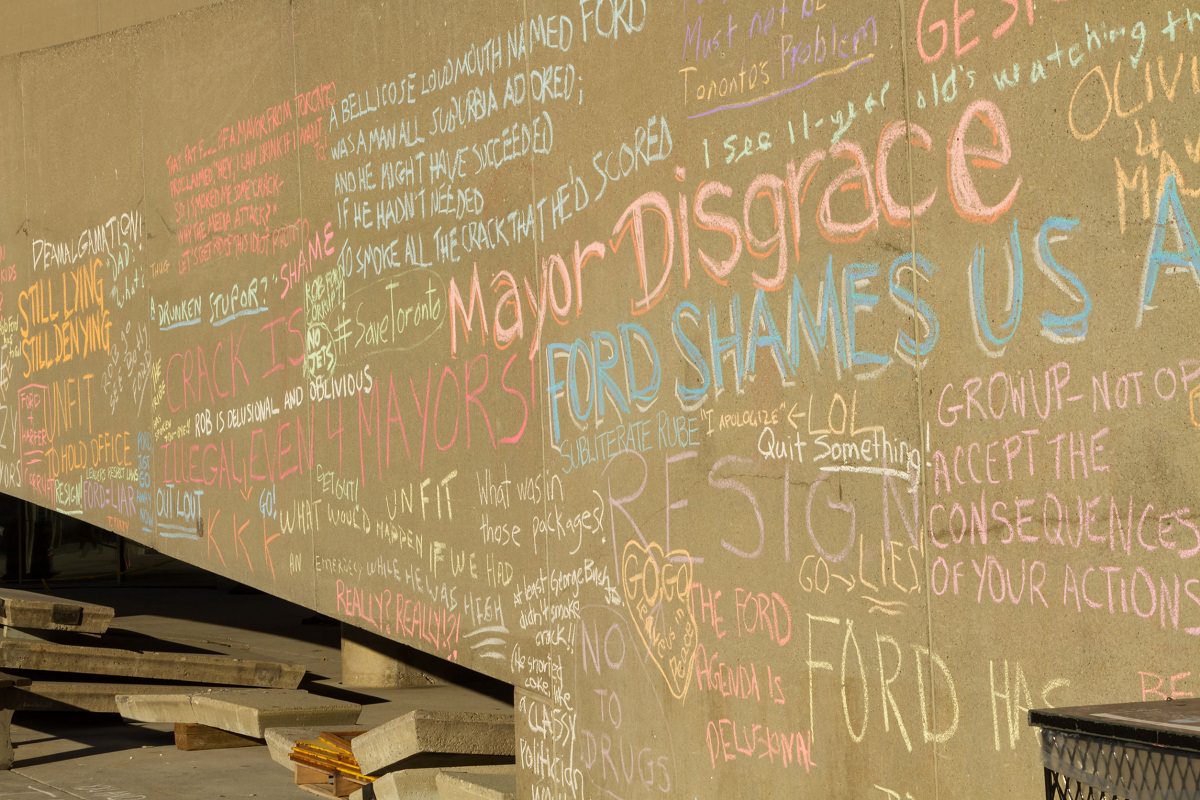 DEAMALGAMATION!
STILL LYING
STILL DENYING
UNFIT
TO HOLD OFFICE
RESIGN!
FORD=LIAR
OUT LOUT
THAT FAT F....OF A MAYOR FROM TORONTO
PROCLAIMED, "HEY, I CAN DRINK IF I WANT TO
SO I SMOKED ME SOME CRACK-
WHY THE MEDIA ATTACK?"
LET'S GET RID OF THIS IDIOT PRONTO
A BELLICOSE LOUDMOUTH NAMED FORD
WAS A MAN ALL SUBURBIA ADORED;
AND HE MIGHT HAVE SUCCEEDED
IF HE HADN'T NEEDED
TO SMOKE ALL THE CRACK THAT HE'D SCORED
A DRUNKEN STUPOR?"
SHAME
ROB FORD
CORRUPT!
NO
JETS
#SaveToronto
CRACK IS
ILLEGAL, EVEN 4 MAYORS!
ROB IS DELUSIONAL AND OBLIVIOUS
KKK
GO!
GET OUT!
WHAT WOULD HAPPEN IF WE HAD
AN EMERGENCY WHILE HE WAS HIGH
REALLY? REALLY!?!
UNFIT
What was in
those packages?
Must not be
Toronto's Problem
I see 11-year old's watching
Mayor Disgrace
FORD SHAMES US
SUBLITERATE RUBE
"I APOLOGIZE" ← LOL
Quit Something!
RESIGN
GO → LIES
GO GO
THE FORD
AGENDA IS
DELUSIONAL
FORD HAS
At least George Bush
didn't smoke
crack!!
He snorted
coke, like
a CLASSY
Politician
NO
TO
DRUGS
GROW UP - NOT
ACCEPT THE
CONSEQUENCES
OF YOUR ACTIONS